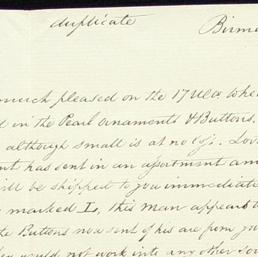 duplicate Birm
much pleased on the 17 Ulto. whe
in the Pearl ornaments & Buttons.
although small is at no
has sent in an apartment am
be shipped to you immediate
marked I, this man appears
Buttons now sent of his are from
would not work into any other